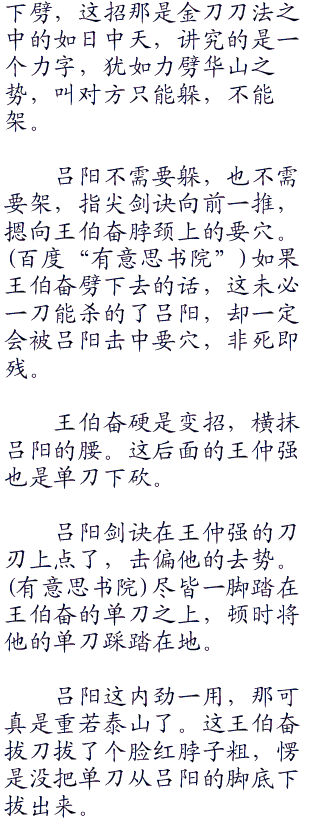 下劈，这招那是金刀刀法之
中的如日中天，讲究的是一
个力字，犹如力劈华山之
势，叫对方只能躲，不能
架。
吕阳不需要躲，也不需
要架，指尖剑诀向前一推，
摁向王伯奋脖颈上的要穴。
(百度“有意思书院”)如果
王伯奋劈下去的话，这未必
一刀能杀的了吕阳，却一定
会被吕阳击中要穴，非死即
残。
王伯奋硬是变招，横抹
吕阳的腰。这后面的王仲强
也是单刀下砍。
吕阳剑诀在王仲强的刀
刃上点了，击偏他的去势。
(有意思书院)尽皆一脚踏在
王伯奋的单刀之上，顿时将
他的单刀踩踏在地。
吕阳这内劲一用，那可
真是重若泰山了。这王伯奋
拔刀拔了个脸红脖子粗，愣
是没把单刀从吕阳的脚底下
拔出来。